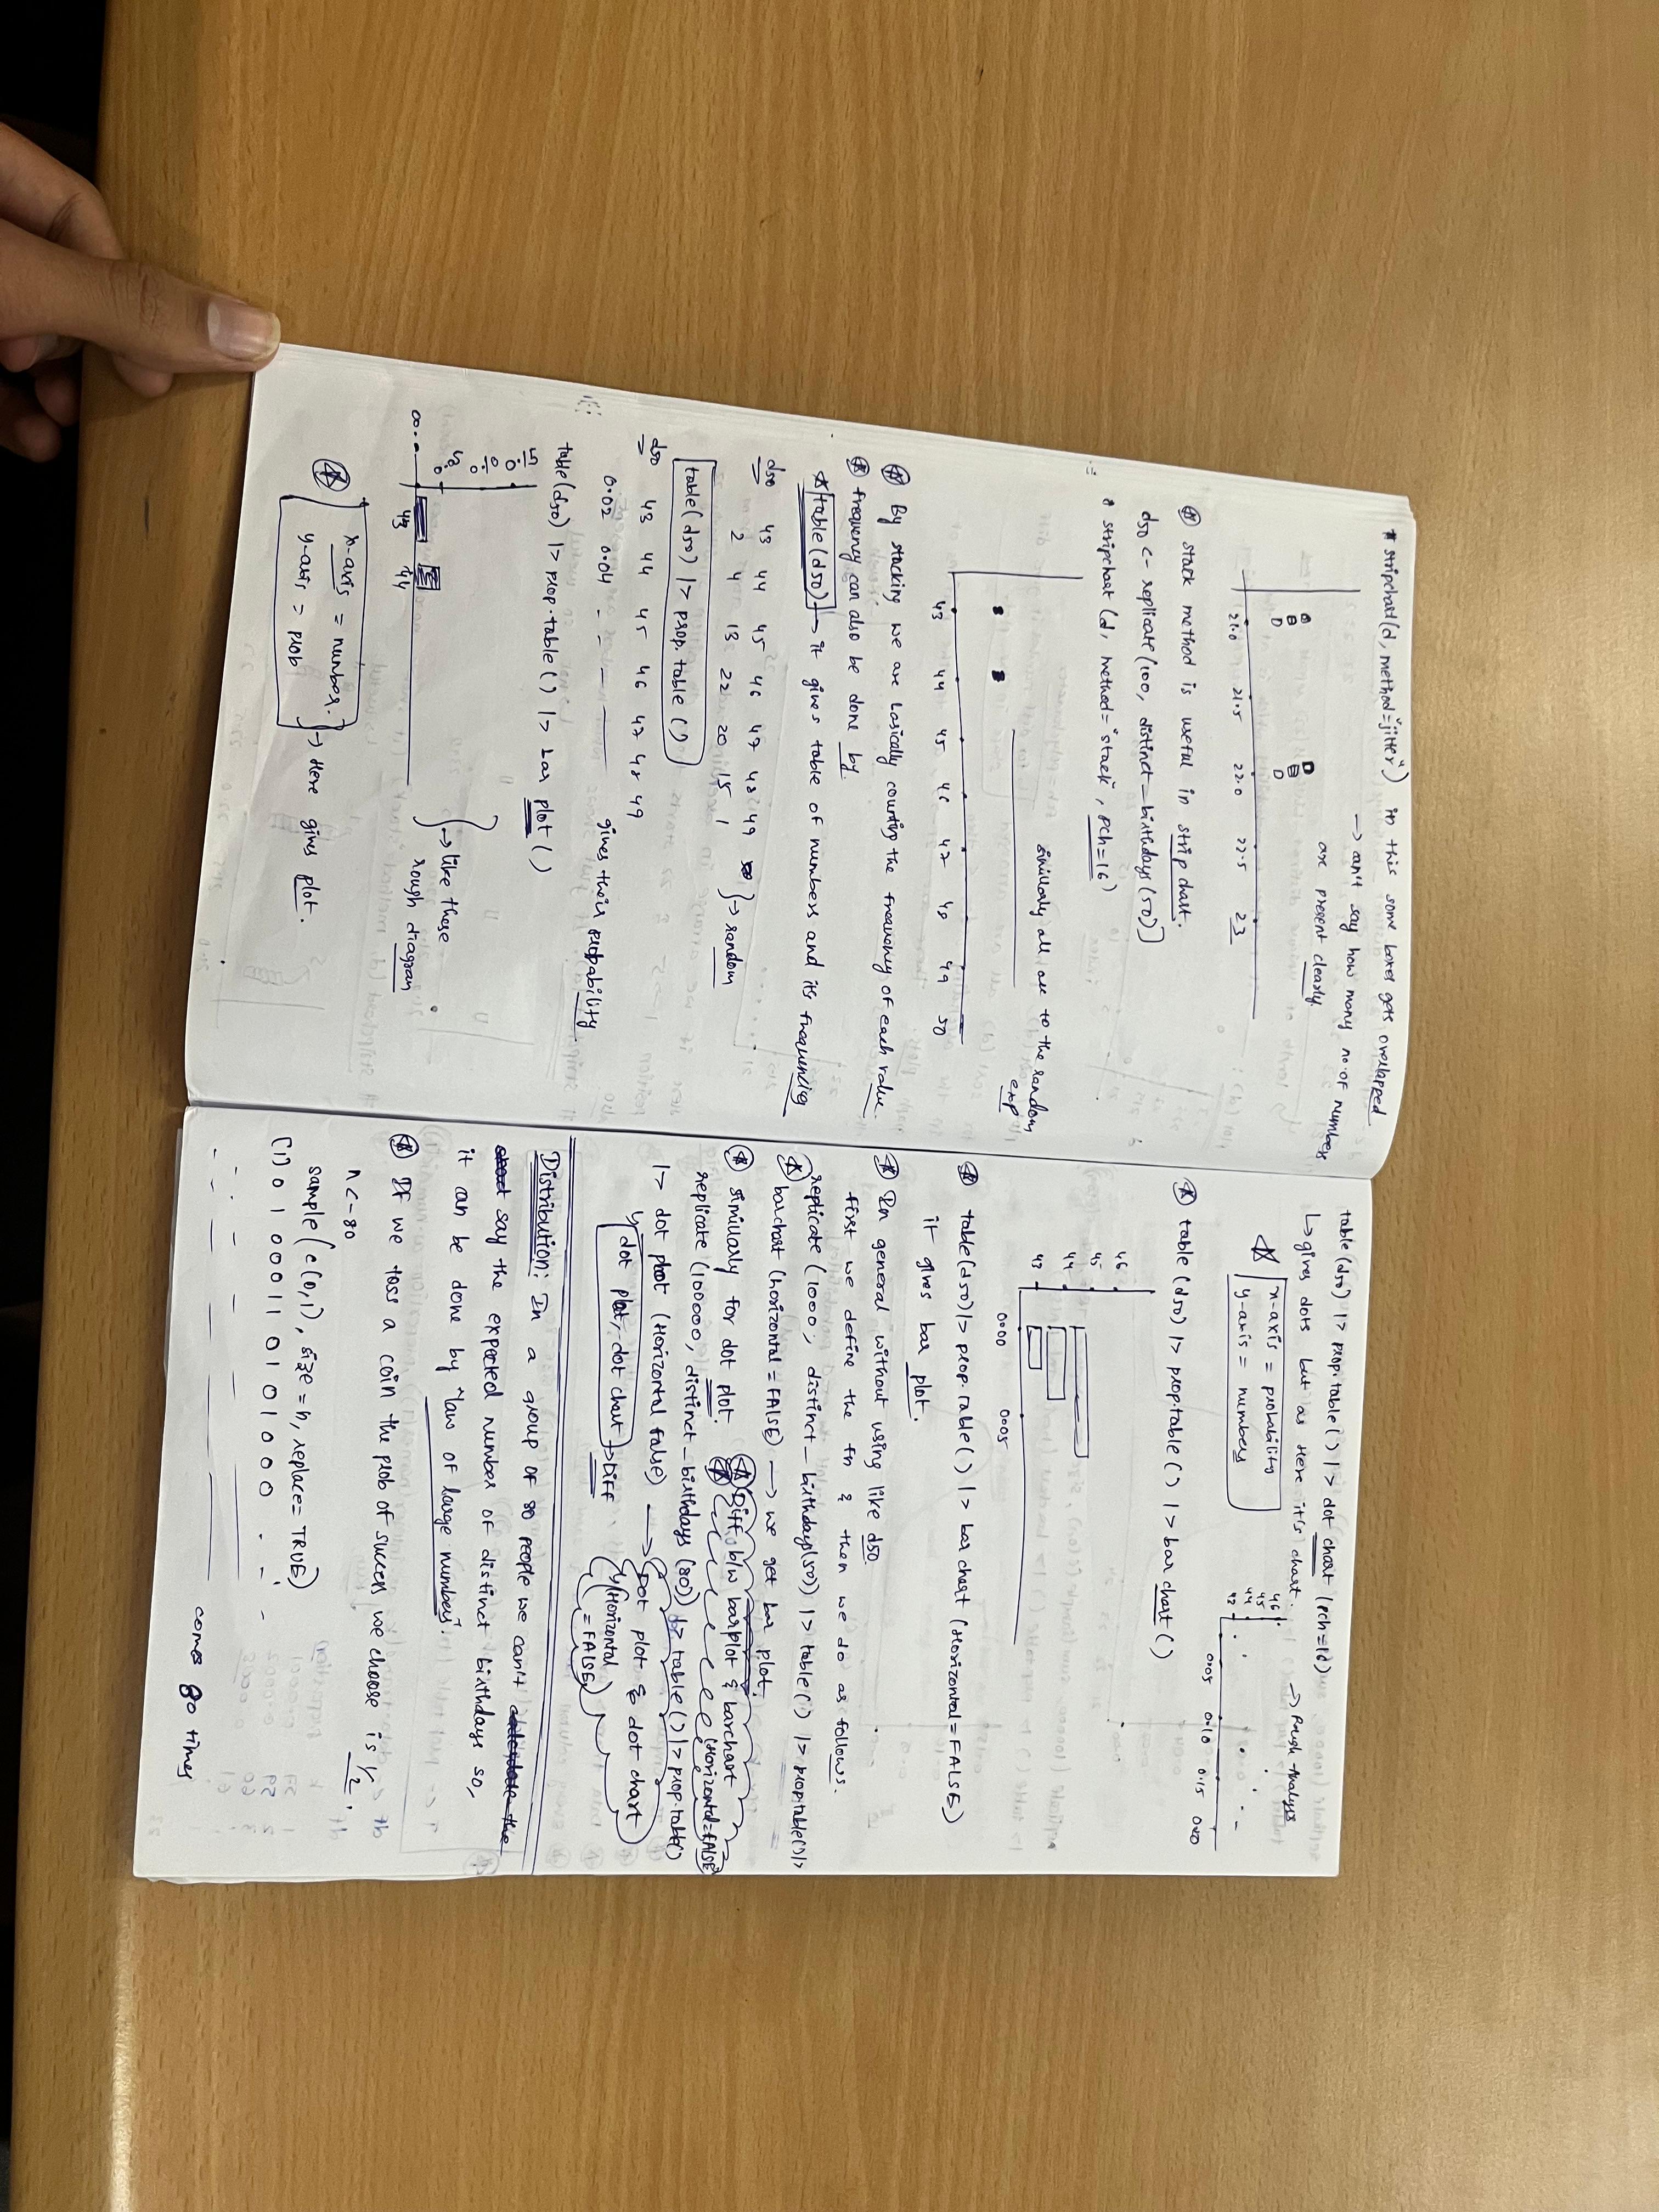 * stripchart(d, method="jitter") in this some boxes gets overlapped
→ can't say how many no. of numbers
are present clearly.
21.0 21.5 22.0 22.5 23
* stack method is useful in strip chart.
d50 <- replicate(100, distinct_birthdays(50))
* stripchart (d, method="stack", pch=16)
similarly all are to the random
exp
43 44 45 46 47 48 49 50
* By stacking we are basically counting the frequency of each value.
* frequency can also be done by
* table(d50) → it gives table of numbers and its frequencies
d50 43 44 45 46 47 48 49
2 4 13 22 20 15 1 } → random
table(d50) |> prop.table ()
d50 43 44 45 46 47 48 49
0.02 0.04 - - - — gives their probability
table(d50) |> prop.table() |> bar plot ()
0.15
0.10
0.5
0.0
43 44
→ like these
rough diagram
* x-axis = number.
y-axis = prob
→ Here gives plot.
table(d50) |> prop.table() |> dot chart (pch=16)
↳ gives dots but as Here it's chart. → Rough Analysis
* x-axis = probability
y-axis = numbers
46
45
44
43
0.05 0.10 0.15 0.20
* table (d50) |> prop.table() |> bar chart()
46
45
44
43
0.00 0.05
* table(d50)|> prop.table() |> bar chart (Horizontal=FALSE)
it gives bar plot.
* In general without using like d50
first we define the fn & then we do as follows.
replicate (1000, distinct_birthdays(50)) |> table() |> prop.table()|>
* barchart (horizontal = FALSE) → we get bar plot.
* similarly for dot plot.
* Diff b/w barplot & barchart
* (Horizontal=FALSE)
replicate (100000, distinct_birthdays (80)) |> table()|> prop.table()
|> dot plot (Horizontal false) → Dot plot & dot chart
↳ (Horizontal
= FALSE)
dot plot, dot chart → Diff
Distribution: In a group of 80 people we can't
say the expected number of distinct birthdays so,
it can be done by "law of large numbers".
* If we toss a coin the prob of success we choose is 1/2.
n <- 80
sample (c(0,1), size = n, replace= TRUE)
(1) 0 1 0 0 0 1 1 0 1 0 1 0 0 0 . - -
comes 80 times